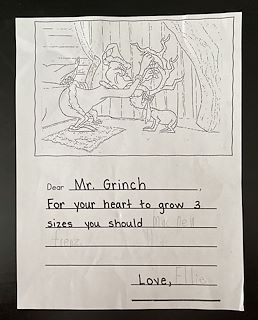 Dear Mr. Grinch,
For your heart to grow 3
sizes you should
Love, Ellie